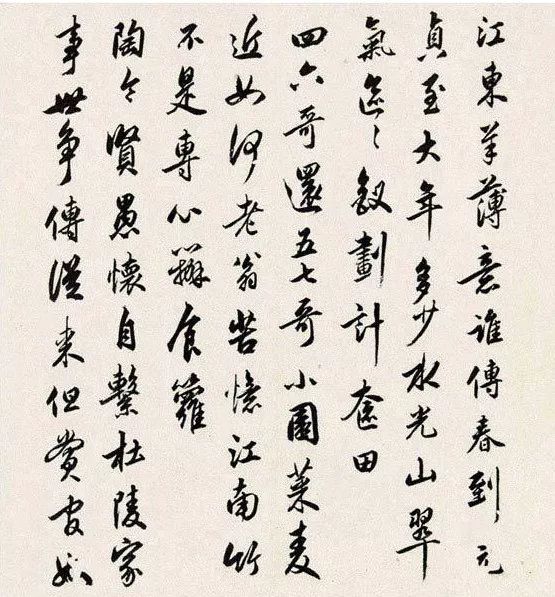 江東羊薄意誰傳春到元
貞至大年多少水光山翠
氣區〻釵劃計畬田
四六哥還五七哥小園菜麦
近如何老翁苦憶江南竹
不是專心辦食籮
陶令賢愚懷自繫杜陵家
事世争傳從来但賞